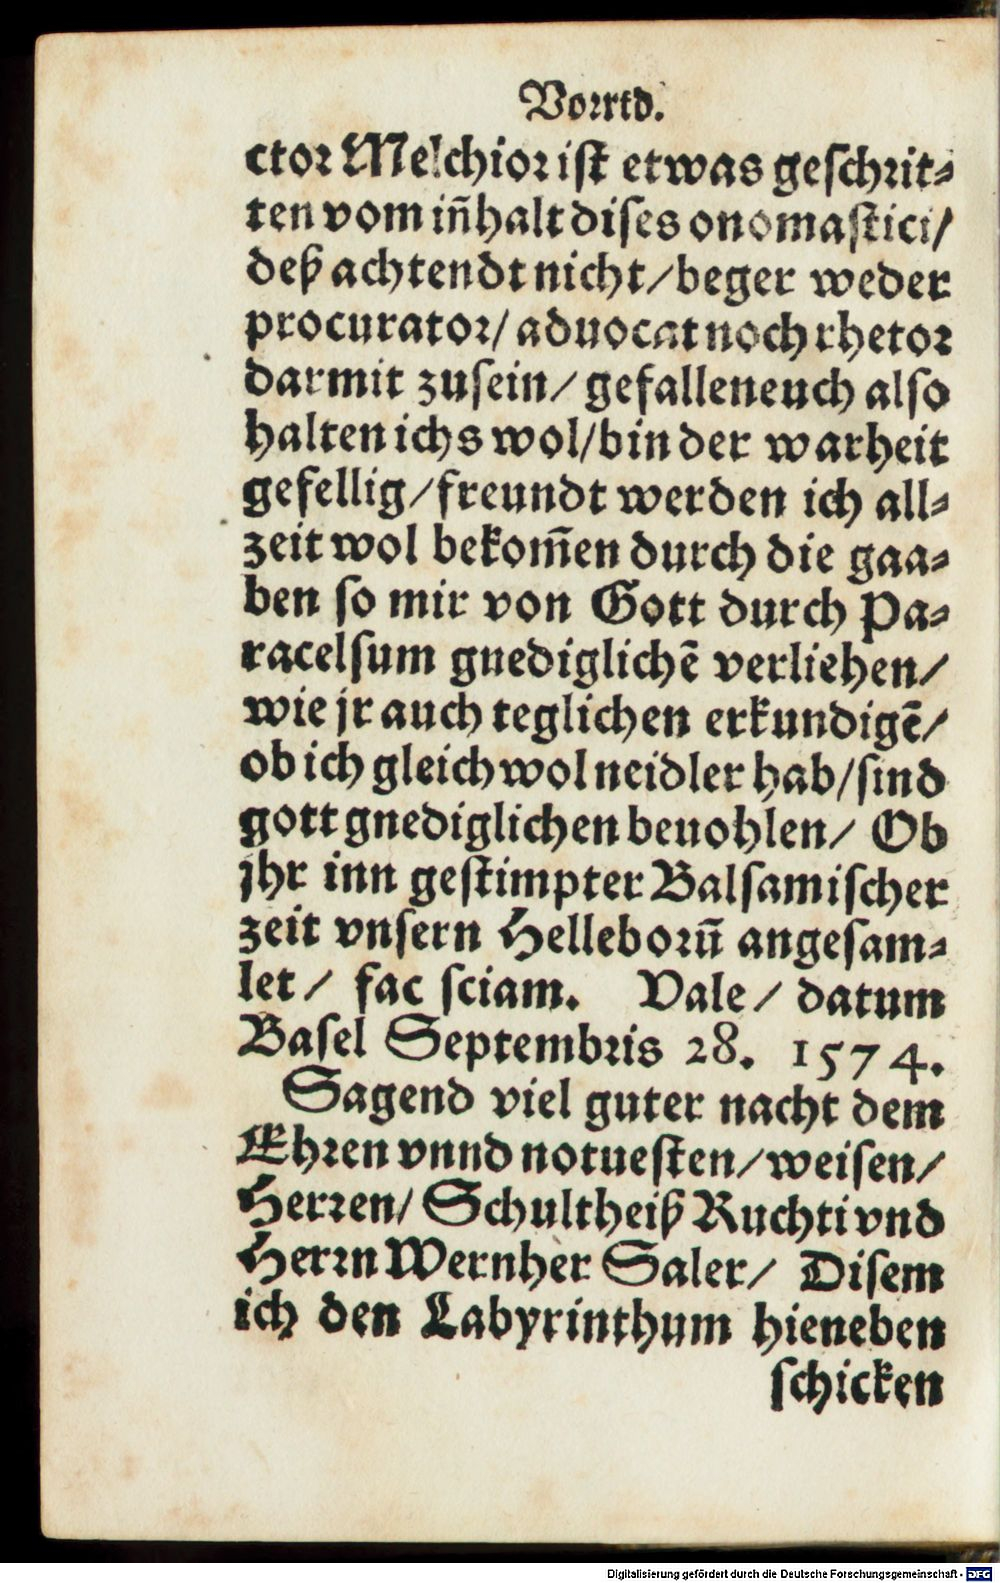 Vorred.
ctor Melchior ist etwas geschrit⸗
ten vom iñhalt dises onomastici/
deß achtendt nicht/beger weder
procurator/ aduocat noch rhetor
darmit zusein/ gefallen euch also
halten ichs wol/bin der warheit
gefellig/freundt werden ich all⸗
zeit wol bekom̃en durch die gaa⸗
ben so mir von Gott durch Pa⸗
racelsum gnediglichẽ verliehen/
wie jr auch teglichen erkundigẽ/
ob ich gleich wol neidler hab/sind
gott gnediglichen beuohlen/ Ob
jhr inn gestimpter Balsamischer
zeit vnsern Helleborũ angesam⸗
let/ fac sciam. Vale/ datum
Basel Septembris 28. 1574.
Sagend viel guter nacht dem
Ehren vnnd notuesten/weisen/
Herren/ Schultheiß Ruchti vnd
Herrn Wernher Saler/ Disem
ich den Labyrinthum hieneben
schicken
Digitalisierung gefördert durch die Deutsche Forschungsgemeinschaft - DFG